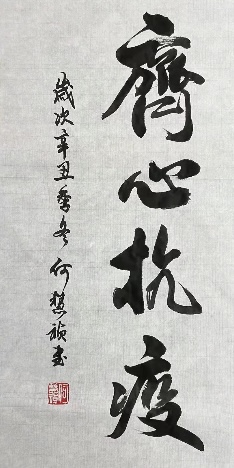 齊心抗疫
歲次辛丑季冬何慧禎書